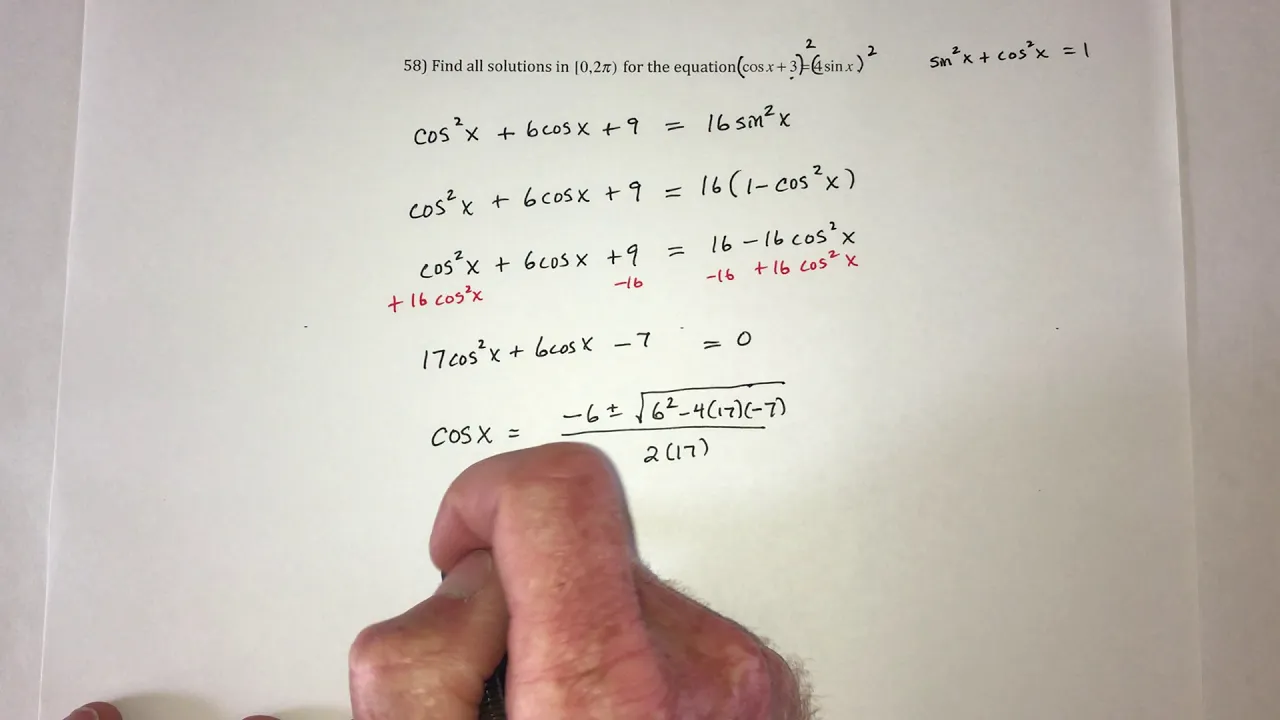 58) Find all solutions in [0,2π) for the equation (cos x + 3)² = (4 sin x)²
sin²x + cos²x = 1
cos²x + 6cosx + 9 = 16 sin²x
cos²x + 6cosx + 9 = 16(1 - cos²x)
cos²x + 6cosx + 9 = 16 - 16 cos²x
+ 16 cos²x -16 -16 + 16 cos²x
17cos²x + 6cosx - 7 = 0
cosx = (-6 ± √(6² - 4(17)(-7))) / 2(17)